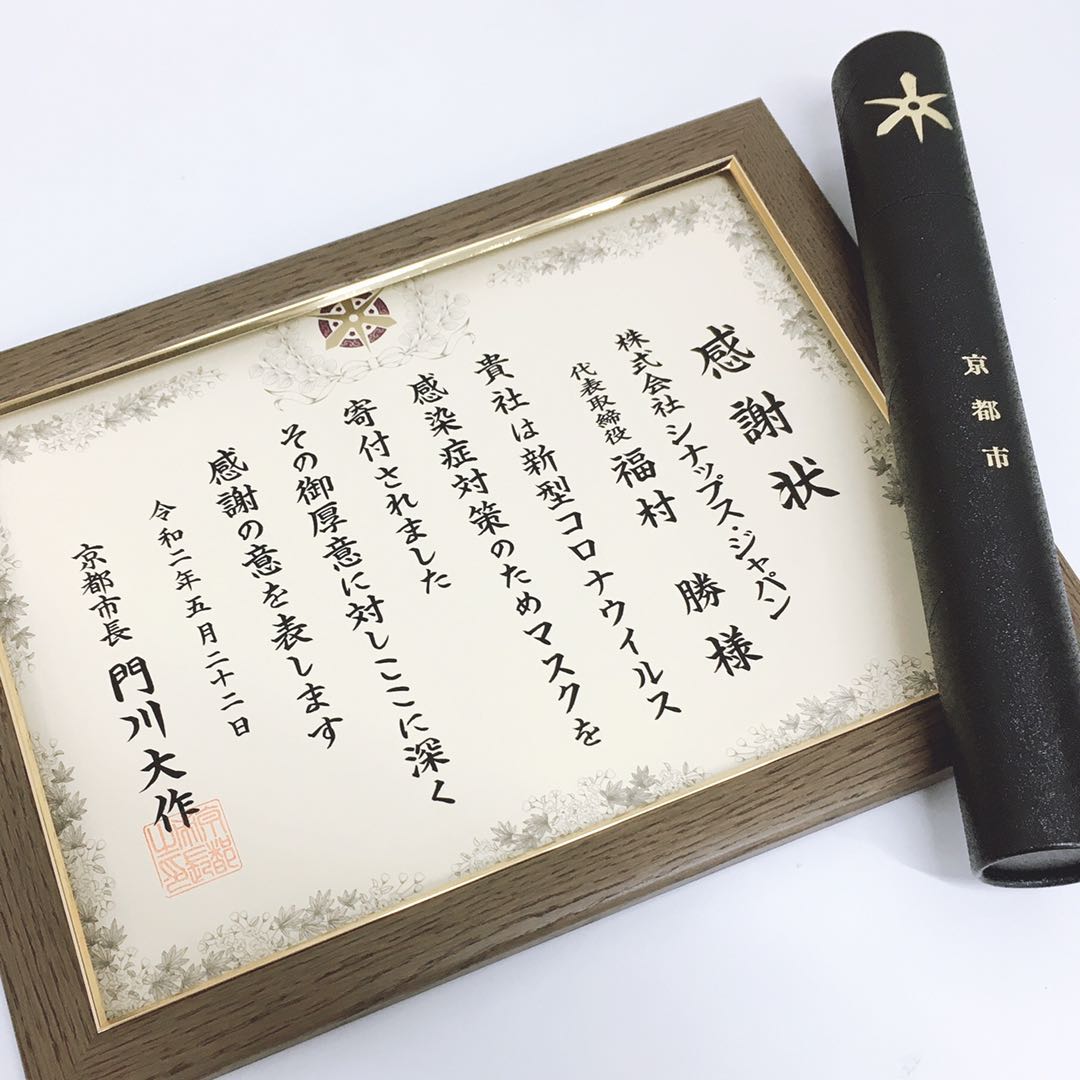 感謝状
株式会社シナップス・ジャパン
代表取締役 福村 勝様
貴社は新型コロナウイルス
感染症対策のためマスクを
寄付されました
その御厚意に対しここに深く
感謝の意を表します
令和二年五月二十二日
京都市長 門川大作
京都市長之印
京都市